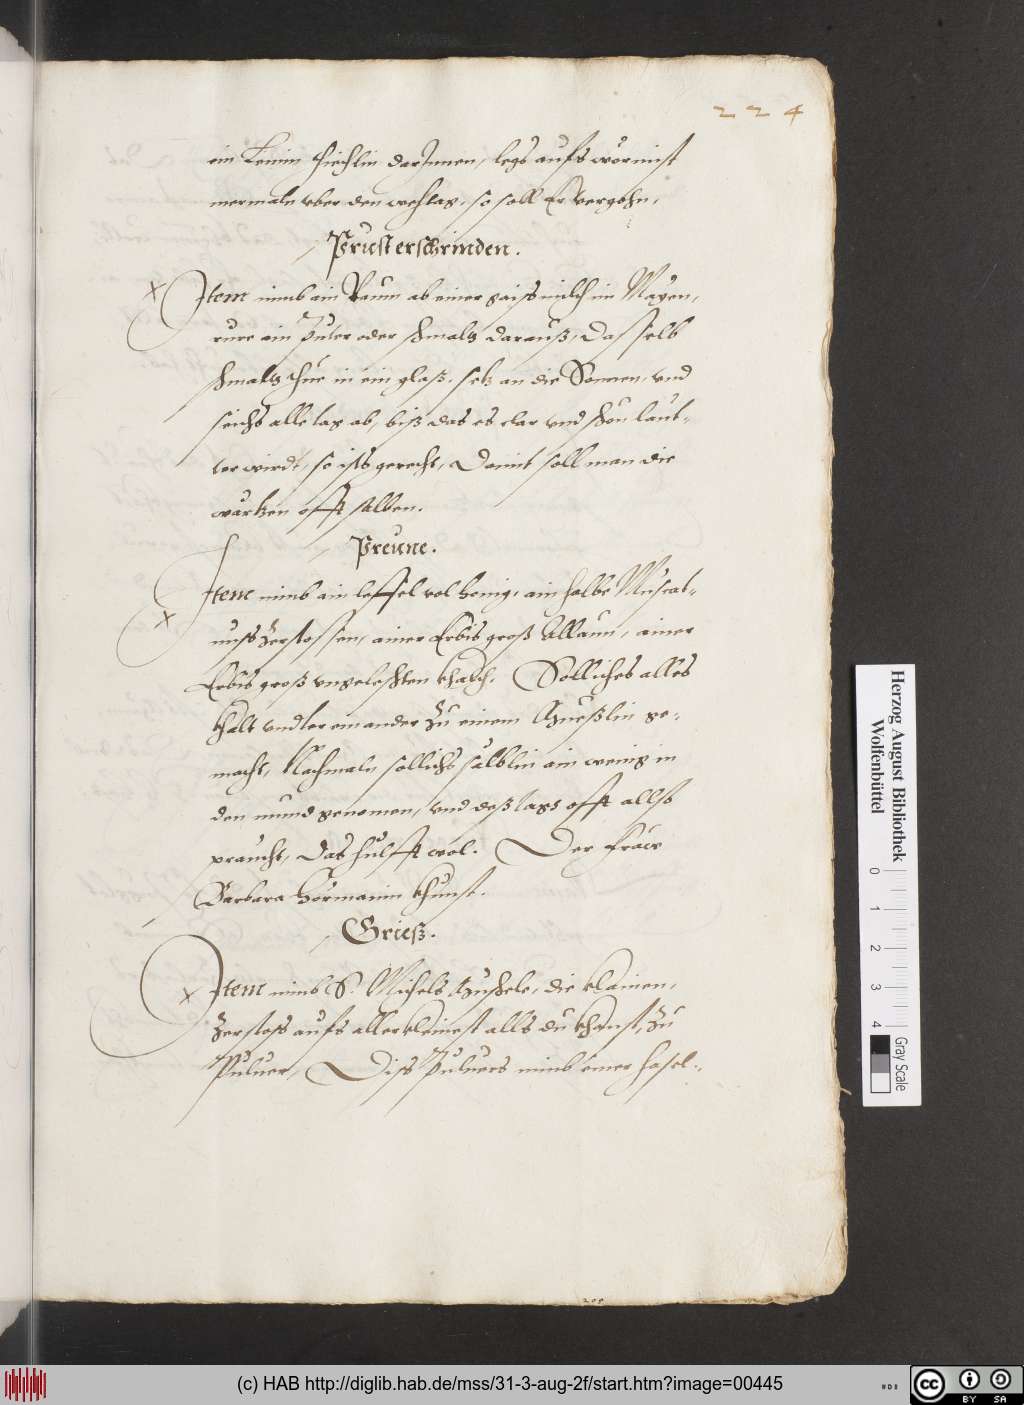 224
ein Leinin thiechlin darInnen, legs aufs wörmist
nermaln vber den wehtag, so soll Er vergehn,
Prust erschrinden.
x Item nimb ain Raum ab einer gaissmilch im Mayen,
rure ain Puter oder schmaltz darauß, Das selb
schmaltz thue in ein glaß, setz an die Sonnen, vnd
seichs alle tag ab, biß das es clar vnd schon laut-
ter wirdt, so ists gerecht, Damit soll man die
wartzen offt salben.
Preune.
x Item nimb ain leffel vol honig, ain halbe Muscat-
nuss zerstossen, ainer Erbis groß Allaun, ainer
Erbis groß vngeleschten khalch. Solliches alles
khalt vndter einander zu einem Mueßlin ge-
macht, Nachmaln sollichs sälblin ain wenig in
den mund genomen, vnd deß tags offt allso
praucht, Das hülfft wol. Der Fraw
Barbara Hörmanin khunst.
Grieß.
x Item nimb S. Michels Muschele, die klainen,
Zerstoss aufs allerkleinest alls du khanst, Zu
Puluer, Diss Puluers nimb einer hasel-
Herzog August Bibliothek
Wolfenbüttel
0 1 2 3 4
Gray Scale
(c) HAB http://diglib.hab.de/mss/31-3-aug-2f/start.htm?image=00445
cc BY SA